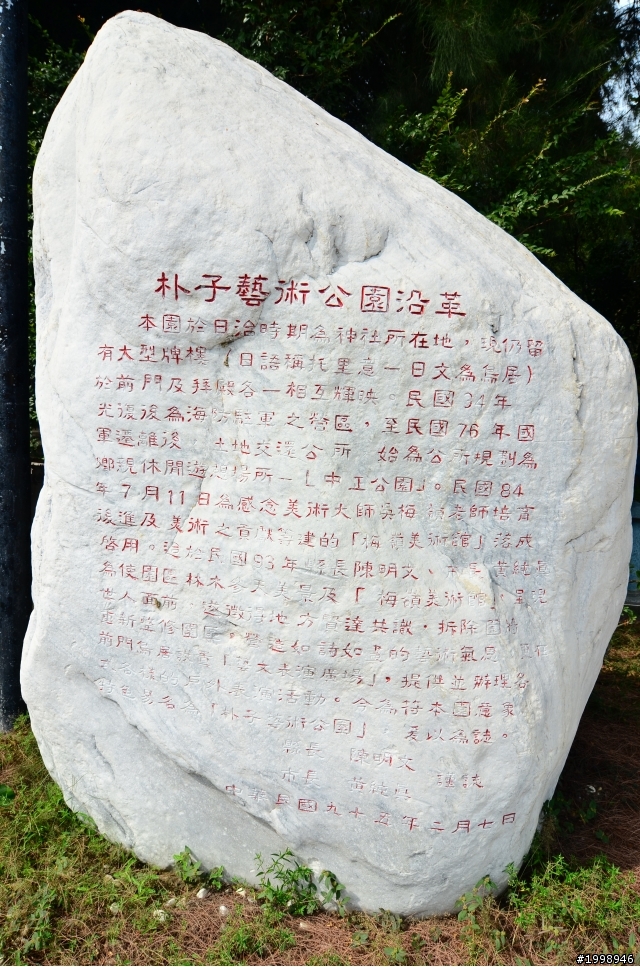 朴子藝術公園沿革
本園於日治時期為神社所在地，現仍留
有大型牌樓（日語稱托里意－日文為鳥居）
於前門及拜殿各一相互輝映。民國34年
光復後為海防駐軍之營區，至民國76年國
軍遷離後，土地交還公所 始為公所規劃為
鄉親休閒遊憩場所－「中正公園」。民國84
年7月11日為感念美術大師吳梅嶺老師培育
後進及美術之貢獻籌建的「梅嶺美術館」落成
啓用。迨於民國93年 縣長陳明文、市長黃純
為使園區林木 美景及「梅嶺美術館」呈現
世人面前， 地方 達共識，拆除圍
重新整修園區，營造如詩如畫的藝術氣息，
前門 「藝文表演廣場」，提供並辦理各
表演活動。今為符本園意象
名為「朴子藝術公園」，爰以為誌。
縣長 陳明文
市長 黃純 謹誌
中華民國九十五年二月七日
#1998946